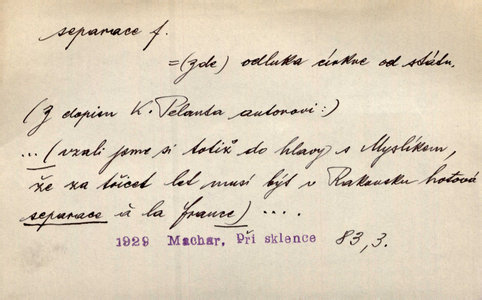 separace f.
=(zde) odluka církve od státu.
(Z dopisu K. Pelanta autorovi:)
...(vzali jsme si totiž do hlavy s Myslíkem,
že za třicet let musí být v Rakousku hotová
separace à la france) ....
1929 Machar, Při sklence 83,3.